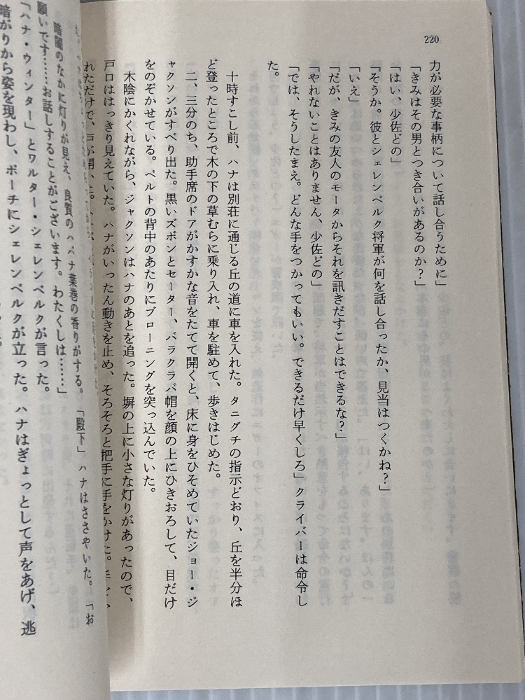 220
力が必要な事柄について話し合うために」
「きみはその男とつき合いがあるのか?」
「はい、少佐どの」
「そうか。彼とシェレンベルク将軍が何を話し合ったか、見当はつくかね?」
「いえ」
「だが、きみの友人のモータからそれを訊きだすことはできるな?」
「やれないことはありません、少佐どの」
「では、そうしたまえ。どんな手をつかってもいい。できるだけ早くしろ」クライバーは命令し
た。
十時すこし前、ハナは別荘に通じる丘の道に車を入れた。タニグチの指示どおり、丘を半分ほ
ど登ったところで木の下の草むらに乗り入れ、車を駐めて、歩きはじめた。
二、三分のち、助手席のドアがかすかな音をたてて開くと、床に身をひそめていたジョー・ジ
ャクソンがすべり出た。黒いズボンとセーター、バラクラバ帽を顔の上にひきおろして、目だけ
をのぞかせている。ベルトの背中のあたりにブローニングを突っ込んでいた。
木陰にかくれながら、ジャクソンはハナのあとを追った。塀の上に小さな灯りがあったので、
戸口ははっきり見えていた。ハナがいったん動きを止め、そろそろと把手に手をかけた。
れただけで、戸が開
暗闇のなかに灯りが見え、良質のハバナ葉巻の香りがする。「殿下」ハナはささやいた。「お
願いです……お話しすることがございます。わたくしは……」
「ハナ・ウィンター」とワルター・シェレンベルクが言った。
暗がりから姿を現わし、ポーチにシェレンベルクが立った。ハナはぎょっとして声をあげ、逃